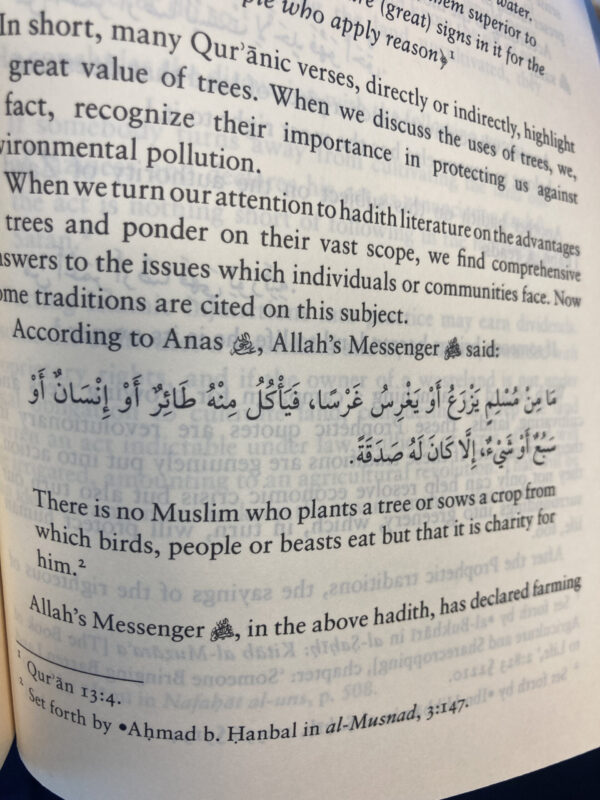 water.
them superior to
(great) signs in it for the
who apply reason﴿¹
In short, many Qur'ānic verses, directly or indirectly, highlight
great value of trees. When we discuss the uses of trees, we,
fact, recognize their importance in protecting us against
vironmental pollution.
When we turn our attention to hadith literature on the advantages
trees and ponder on their vast scope, we find comprehensive
nswers to the issues which individuals or communities face. Now
ome traditions are cited on this subject.
According to Anas, Allah's Messenger ﷺ said:
مَا مِنْ مُسْلِمٍ يَزْرَعُ أَوْ يَغْرِسُ غَرْسًا، فَيَأْكُلُ مِنْهُ طَائِرٌ أَوْ إِنْسَانٌ أَوْ
سَبُعٌ أَوْ شَيْءٌ، إِلَّا كَانَ لَهُ صَدَقَةٌ.
There is no Muslim who plants a tree or sows a crop from
which birds, people or beasts eat but that it is charity for
him.²
Allah's Messenger ﷺ, in the above hadith, has declared farming
¹ Qur'ān 13:4.
² Set forth by •Aḥmad b. Ḥanbal in al-Musnad, 3:147.